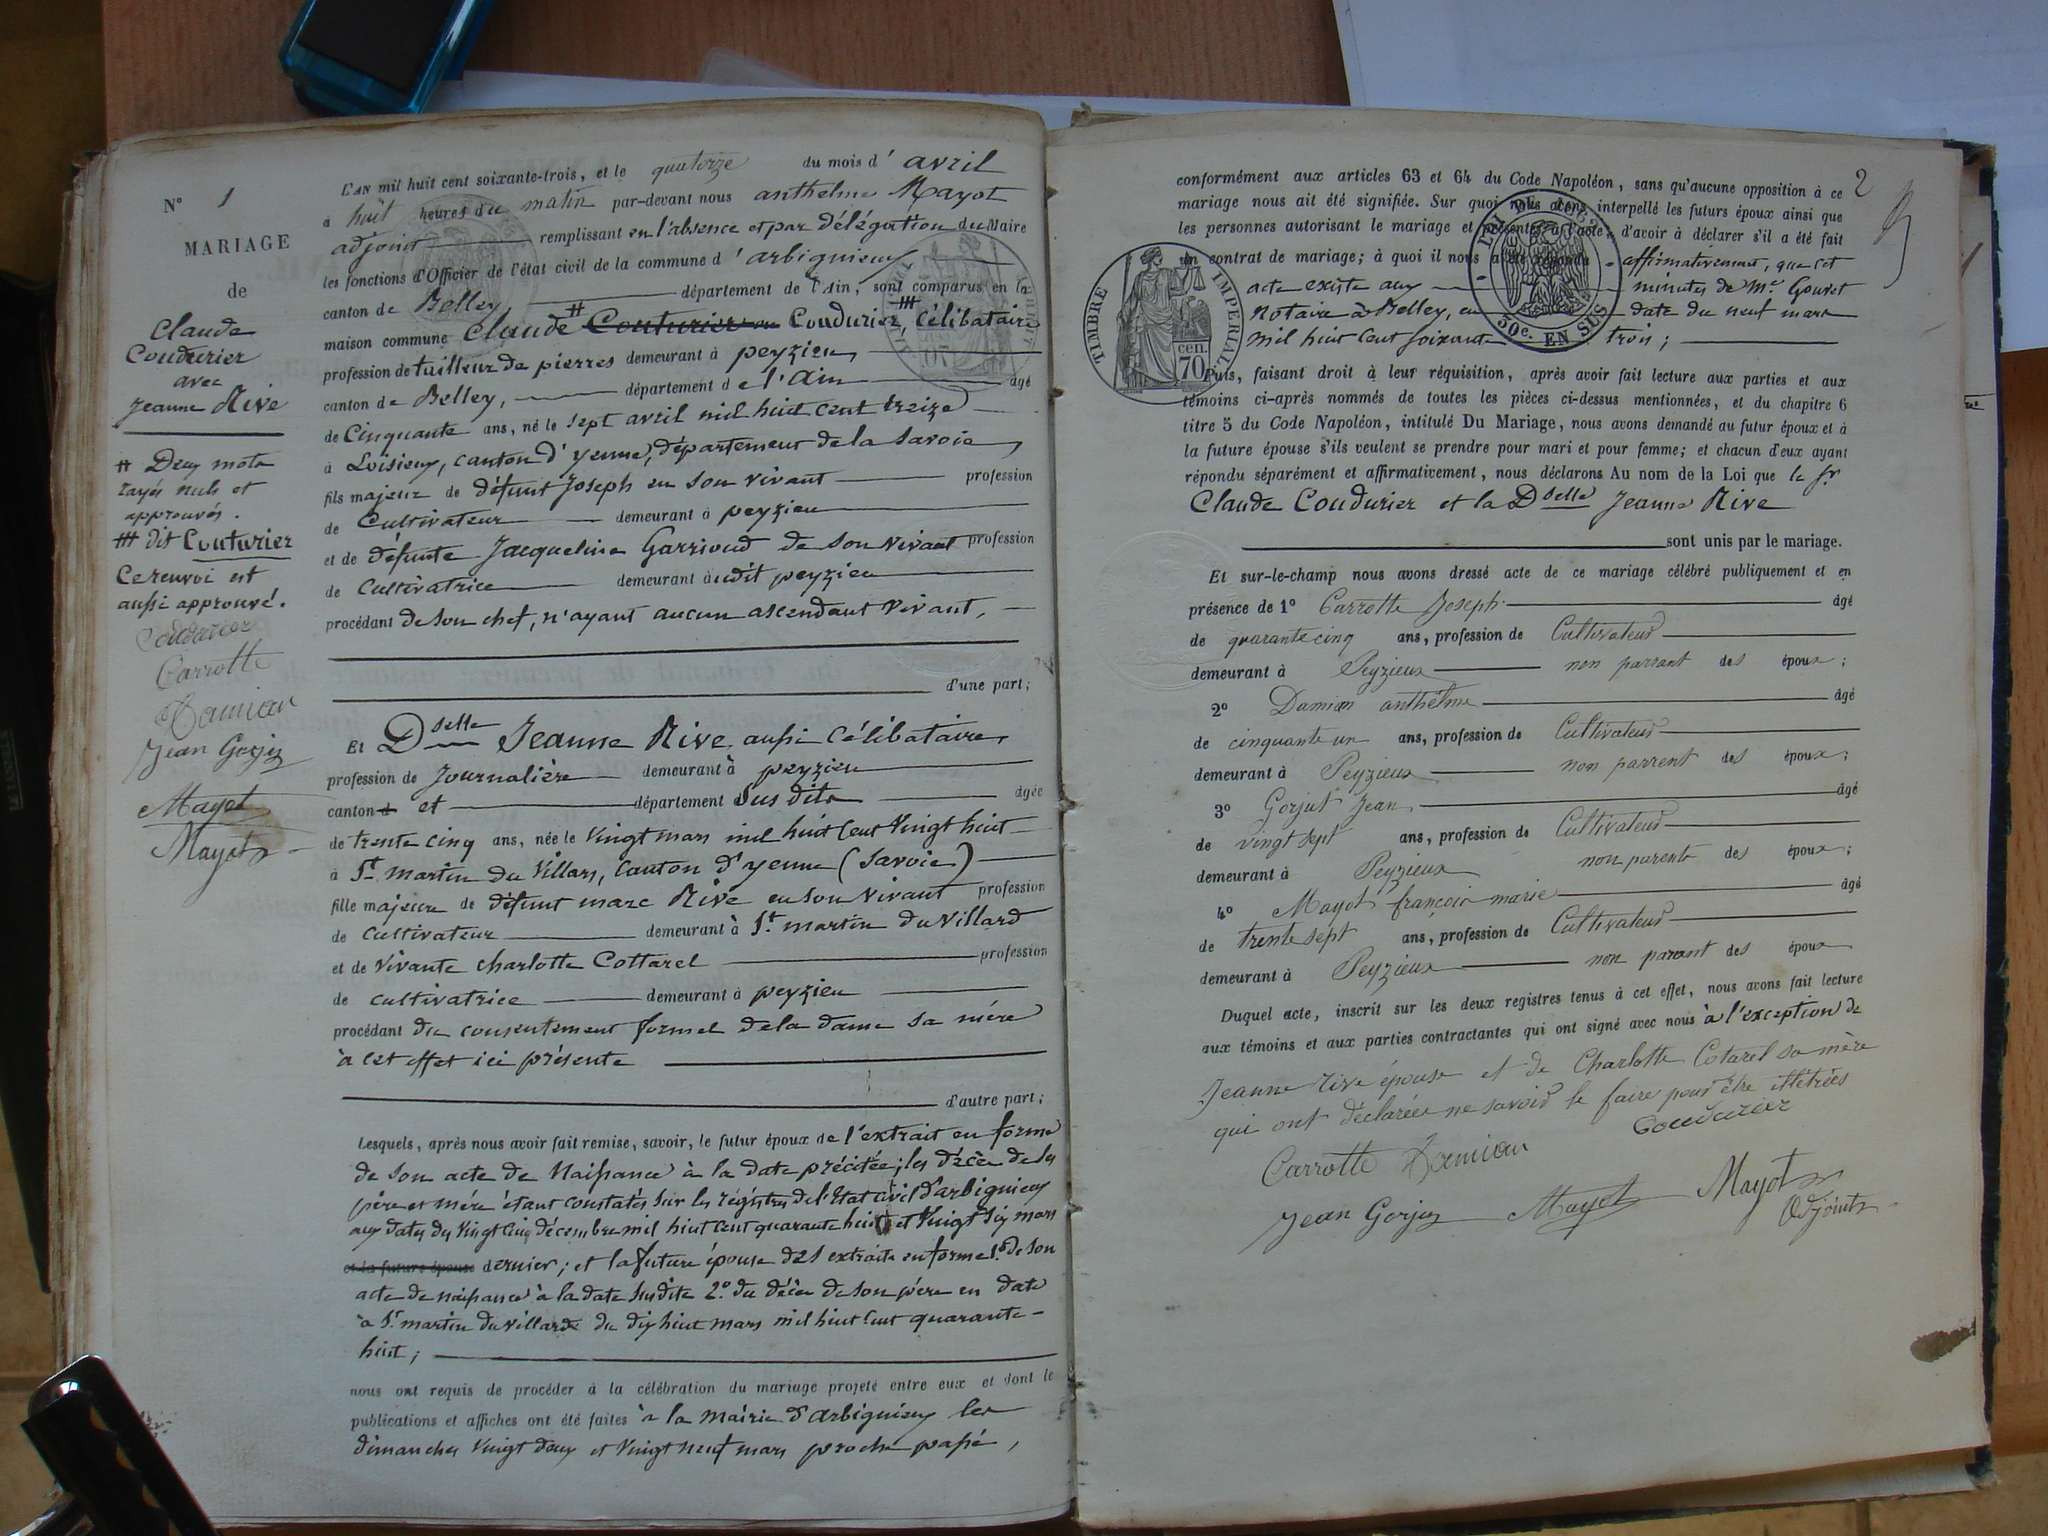 N° 1
MARIAGE
de
Claude
Coudurier
avec
Jeanne Rive
# Deux mots
rayés nuls et
approuvés.
## dit Couturier
Ce renvoi est
aussi approuvé.
Coudurier
Carrotte
Damian
Jean Gorjus
Mayot
Mayot
L'AN mil huit cent soixante-trois, et le quatorze du mois d' avril
à huit heures du matin par-devant nous anthelme Mayot
adjoint remplissant en l'absence et par délégation du Maire
les fonctions d'Officier de l'état civil de la commune d' arbignieu
canton de Belley, département de l'Ain, sont comparus en la
maison commune Claude # Couturier ou Coudurier, ## célibataire
profession de tailleur de pierres demeurant à peyzieu,
canton de Belley, département de l'Ain âgé
de Cinquante ans, né le sept avril mil huit cent treize
à Loisieux, canton d'yenne, département de la Savoie,
fils majeur de défunt Joseph en son vivant profession
de Cultivateur demeurant à peyzieu
et de défunte Jacqueline Garrioud de son vivant profession
de Cultivatrice demeurant à udit peyzieu
procédant de son chef, n'ayant aucun ascendant vivant,
d'une part;
Et Dselle Jeanne Rive aussi Célibataire,
profession de Journalière demeurant à peyzieu
canton d et département Susdits âgée
de trente cinq ans, née le vingt mars mil huit cent vingt huit
à St martin du Villars, canton d'yenne (Savoie)
fille majeure de défunt marc Rive en son vivant profession
de Cultivateur demeurant à St martin du Villard
et de vivante charlotte Cottarel profession
de cultivatrice demeurant à peyzieu
procédant du consentement formel de la dame sa mère
à cet effet ici présente
d'autre part;
Lesquels, après nous avoir fait remise, savoir, le futur époux de l'extrait en forme
de son acte de Naissance à la date précitée; les décès de ses
père et mère étant constatés sur les régistres de l'Etat civil d'arbignieu
aux dates des vingt cinq décembre mil huit cent quarante huit et vingt six mars
et la future épouse dernier; et la future épouse des extraits en forme 1° de son
acte de naissance à la date susdite 2° du décès de son père en date
à St martin du villard du dix huit mars mil huit cent quarante-
huit;
nous ont requis de procéder à la célébration du mariage projeté entre eux et dont le
publications et affiches ont été faites à la mairie d'arbignieu les
dimanches vingt deux et vingt neuf mars proche passé,
2
conformément aux articles 63 et 64 du Code Napoléon, sans qu'aucune opposition à ce
mariage nous ait été signifiée. Sur quoi nous avons interpellé les futurs époux ainsi que
les personnes autorisant le mariage et présentes à l'acte, d'avoir à déclarer s'il a été fait
un contrat de mariage; à quoi il nous a été répondu affirmativement, que cet
acte existe aux minutes de Me Gouvet
Notaire à Belley, en date du neuf mars
mil huit cent soixante trois;
TIMBRE IMPERIAL
70 cen.
50c. EN SUS
Puis, faisant droit à leur réquisition, après avoir fait lecture aux parties et aux
témoins ci-après nommés de toutes les pièces ci-dessus mentionnées, et du chapitre 6
titre 5 du Code Napoléon, intitulé Du Mariage, nous avons demandé au futur époux et à
la future épouse s'ils veulent se prendre pour mari et pour femme; et chacun d'eux ayant
répondu séparément et affirmativement, nous déclarons Au nom de la Loi que le Sr
Claude Coudurier et la Dselle Jeanne Rive
sont unis par le mariage.
Et sur-le-champ nous avons dressé acte de ce mariage célébré publiquement et en
présence de 1° Carrotte Joseph âgé
de quarante cinq ans, profession de Cultivateur
demeurant à Peyzieux non parrant des époux;
2° Damian anthelme âgé
de cinquante un ans, profession de Cultivateur
demeurant à Peyzieux non parrent des époux;
3° Gorjus Jean, âgé
de vingt sept ans, profession de Cultivateur
demeurant à Peyzieux non parents des époux;
4° Mayot françois marie âgé
de trente sept ans, profession de Cultivateur
demeurant à Peyzieux non parant des époux
Duquel acte, inscrit sur les deux registres tenus à cet effet, nous avons fait lecture
aux témoins et aux parties contractantes qui ont signé avec nous à l'exception de
Jeanne rive épouse et de Charlotte Cotarel sa mère
qui ont déclarées ne savoir le faire pour être illétrées
Coudurier
Carrotte Damian
Jean Gorjus Mayot Mayot
Adjoint